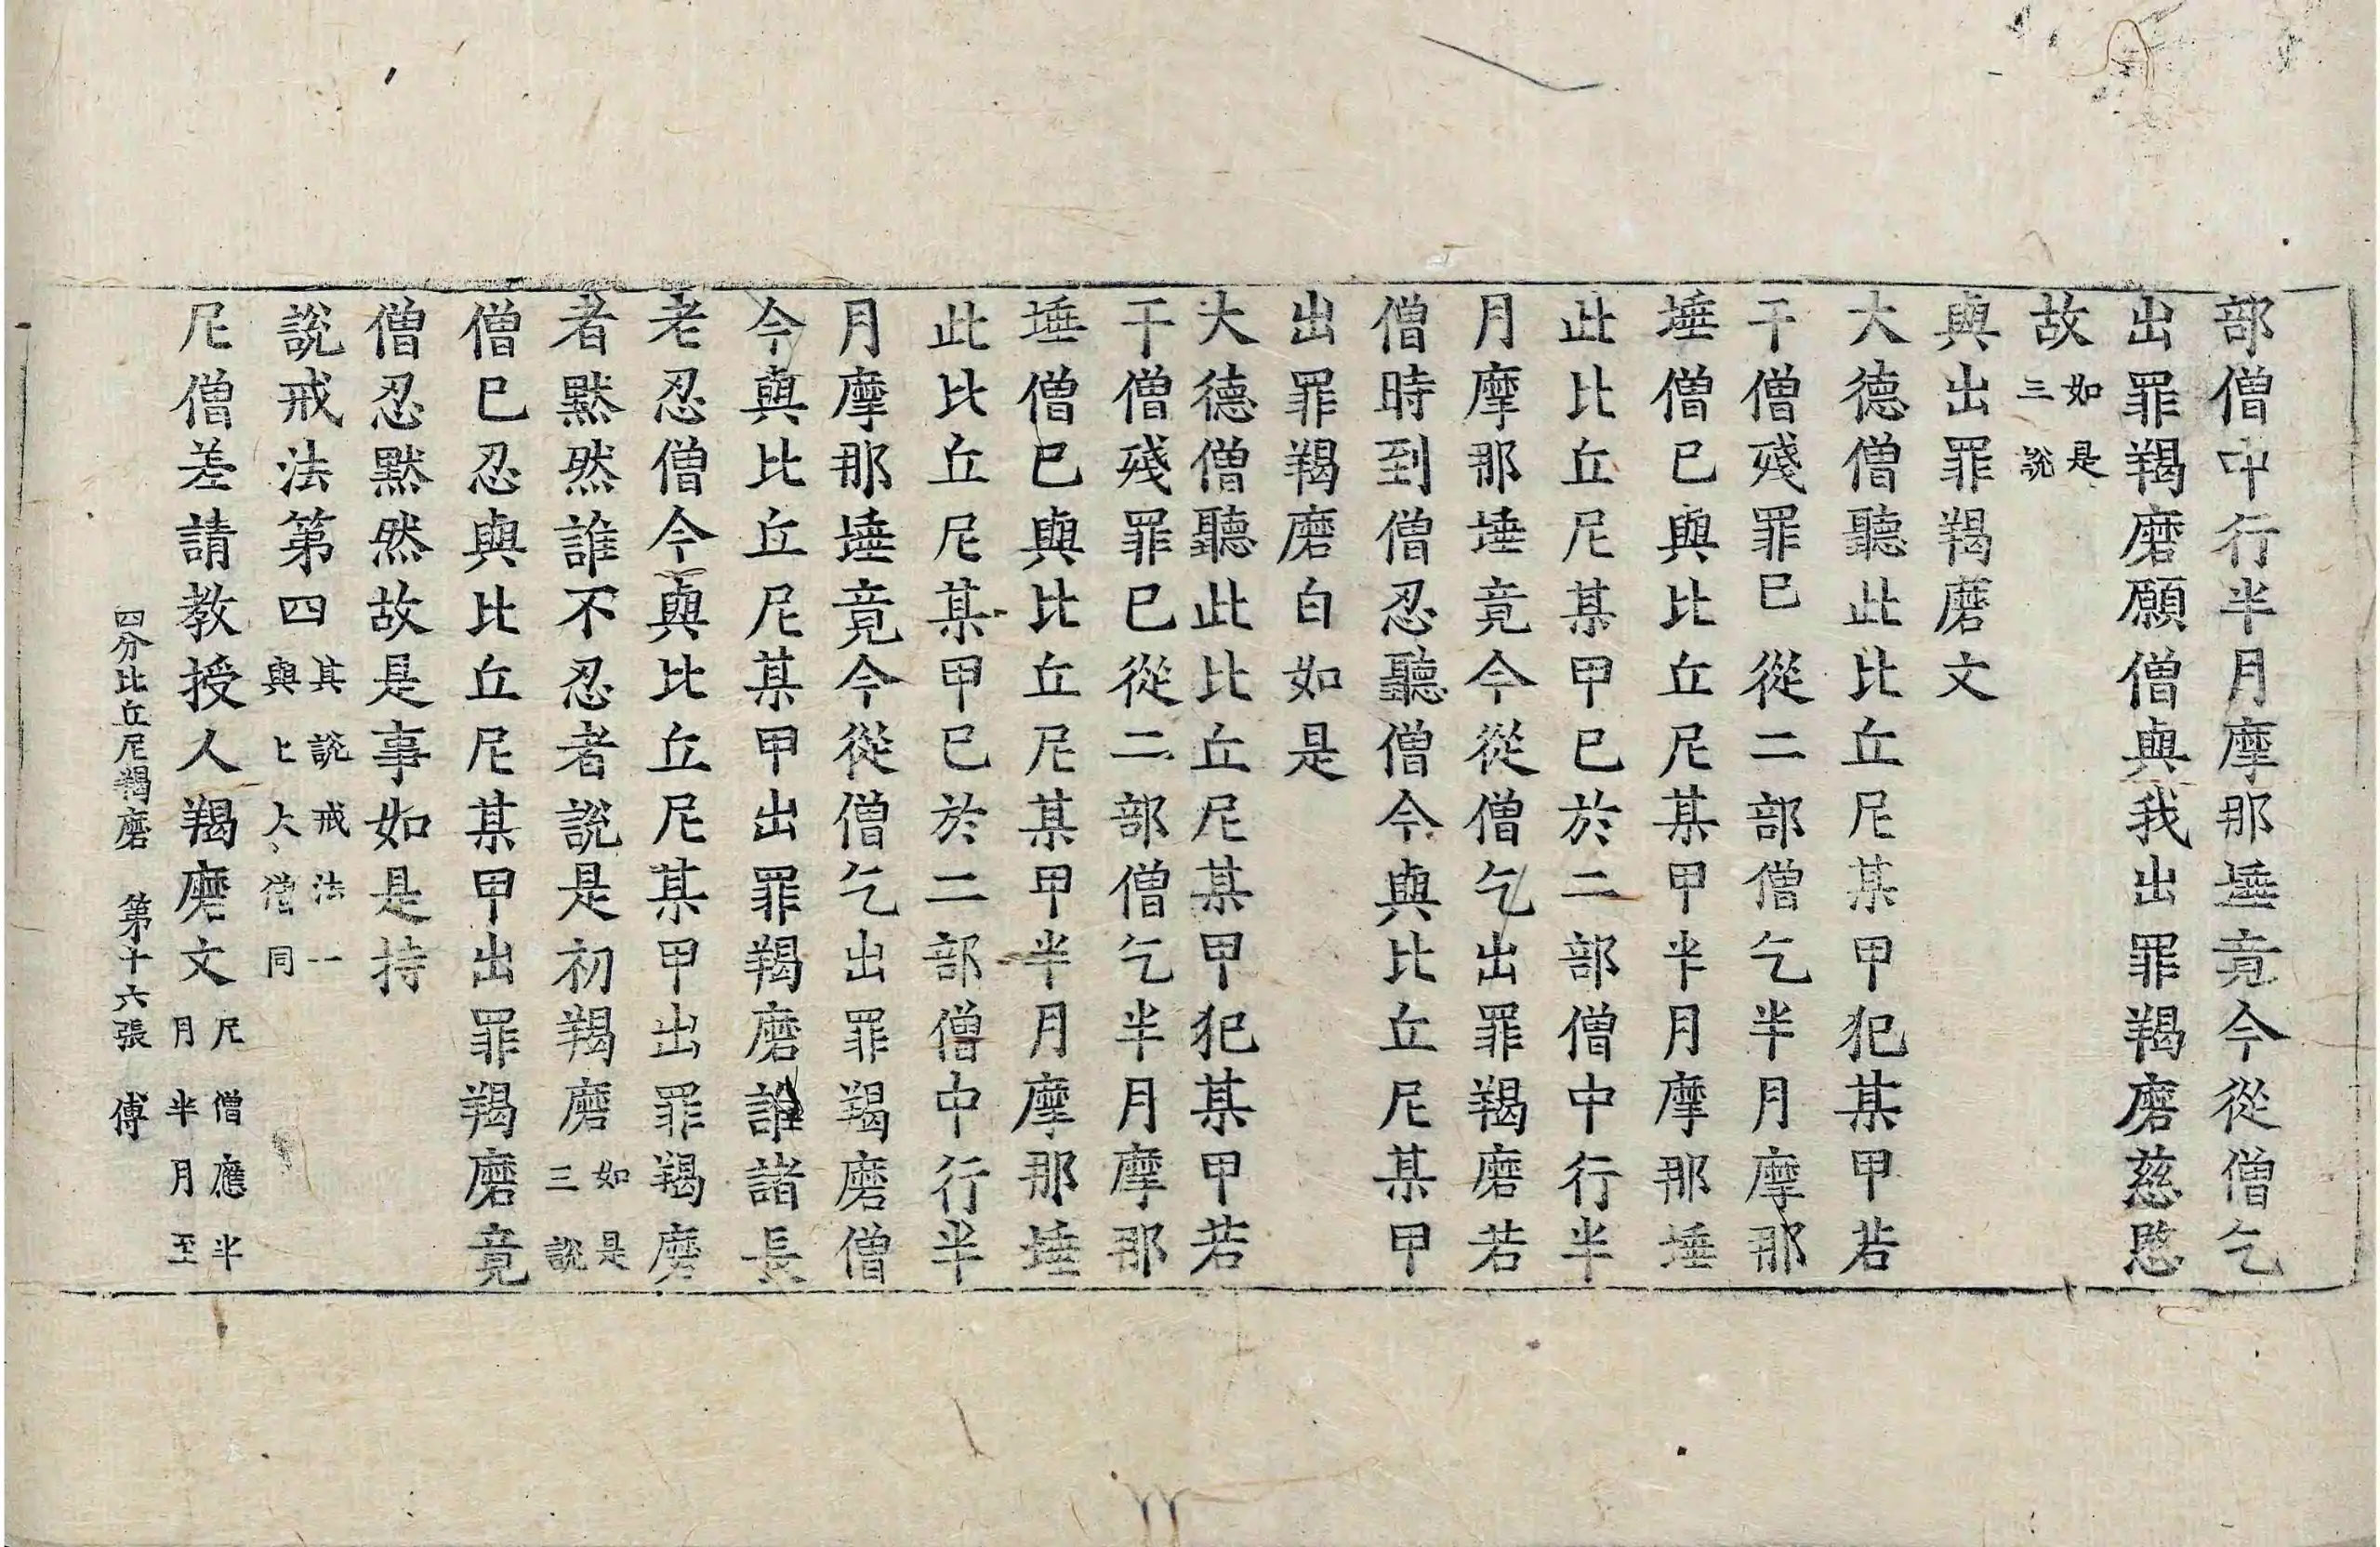 部僧中行半月摩那埵竟今從僧乞
出罪羯磨願僧與我出罪羯磨慈愍
故如是三說
與出罪羯磨文
大德僧聽此比丘尼某甲犯某甲若
干僧殘罪已從二部僧乞半月摩那
埵僧已與比丘尼某甲半月摩那埵
此比丘尼某甲已於二部僧中行半
月摩那埵竟今從僧乞出罪羯磨若
僧時到僧忍聽僧今與比丘尼某甲
出罪羯磨白如是
大德僧聽此比丘尼某甲犯某甲若
干僧殘罪已從二部僧乞半月摩那
埵僧已與比丘尼某甲半月摩那埵
此比丘尼某甲已於二部僧中行半
月摩那埵竟今從僧乞出罪羯磨僧
今與比丘尼某甲出罪羯磨誰諸長
老忍僧今與比丘尼某甲出罪羯磨
者默然誰不忍者說是初羯磨如是三說
僧已忍與比丘尼某甲出罪羯磨竟
僧忍默然故是事如是持
說戒法第四其說戒法一與上大僧同
尼僧差請教授人羯磨文尼僧應半月半月至
四分比丘尼羯磨 第十六張 傅